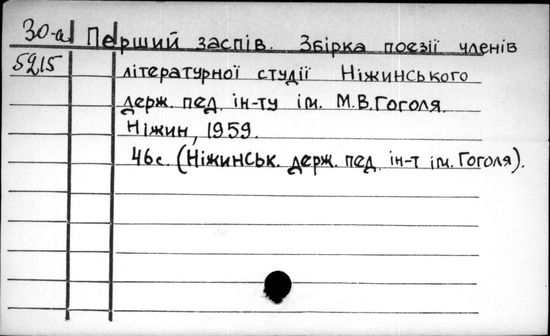 30-а Перший заспів. Збірка поезії членів
5215 літературної студії Ніжинського
держ. пед. ін-ту ім. М.В.Гоголя.
Ніжин, 1959.
46с. (Ніжинськ. держ. пед. ін-т ім. Гоголя).